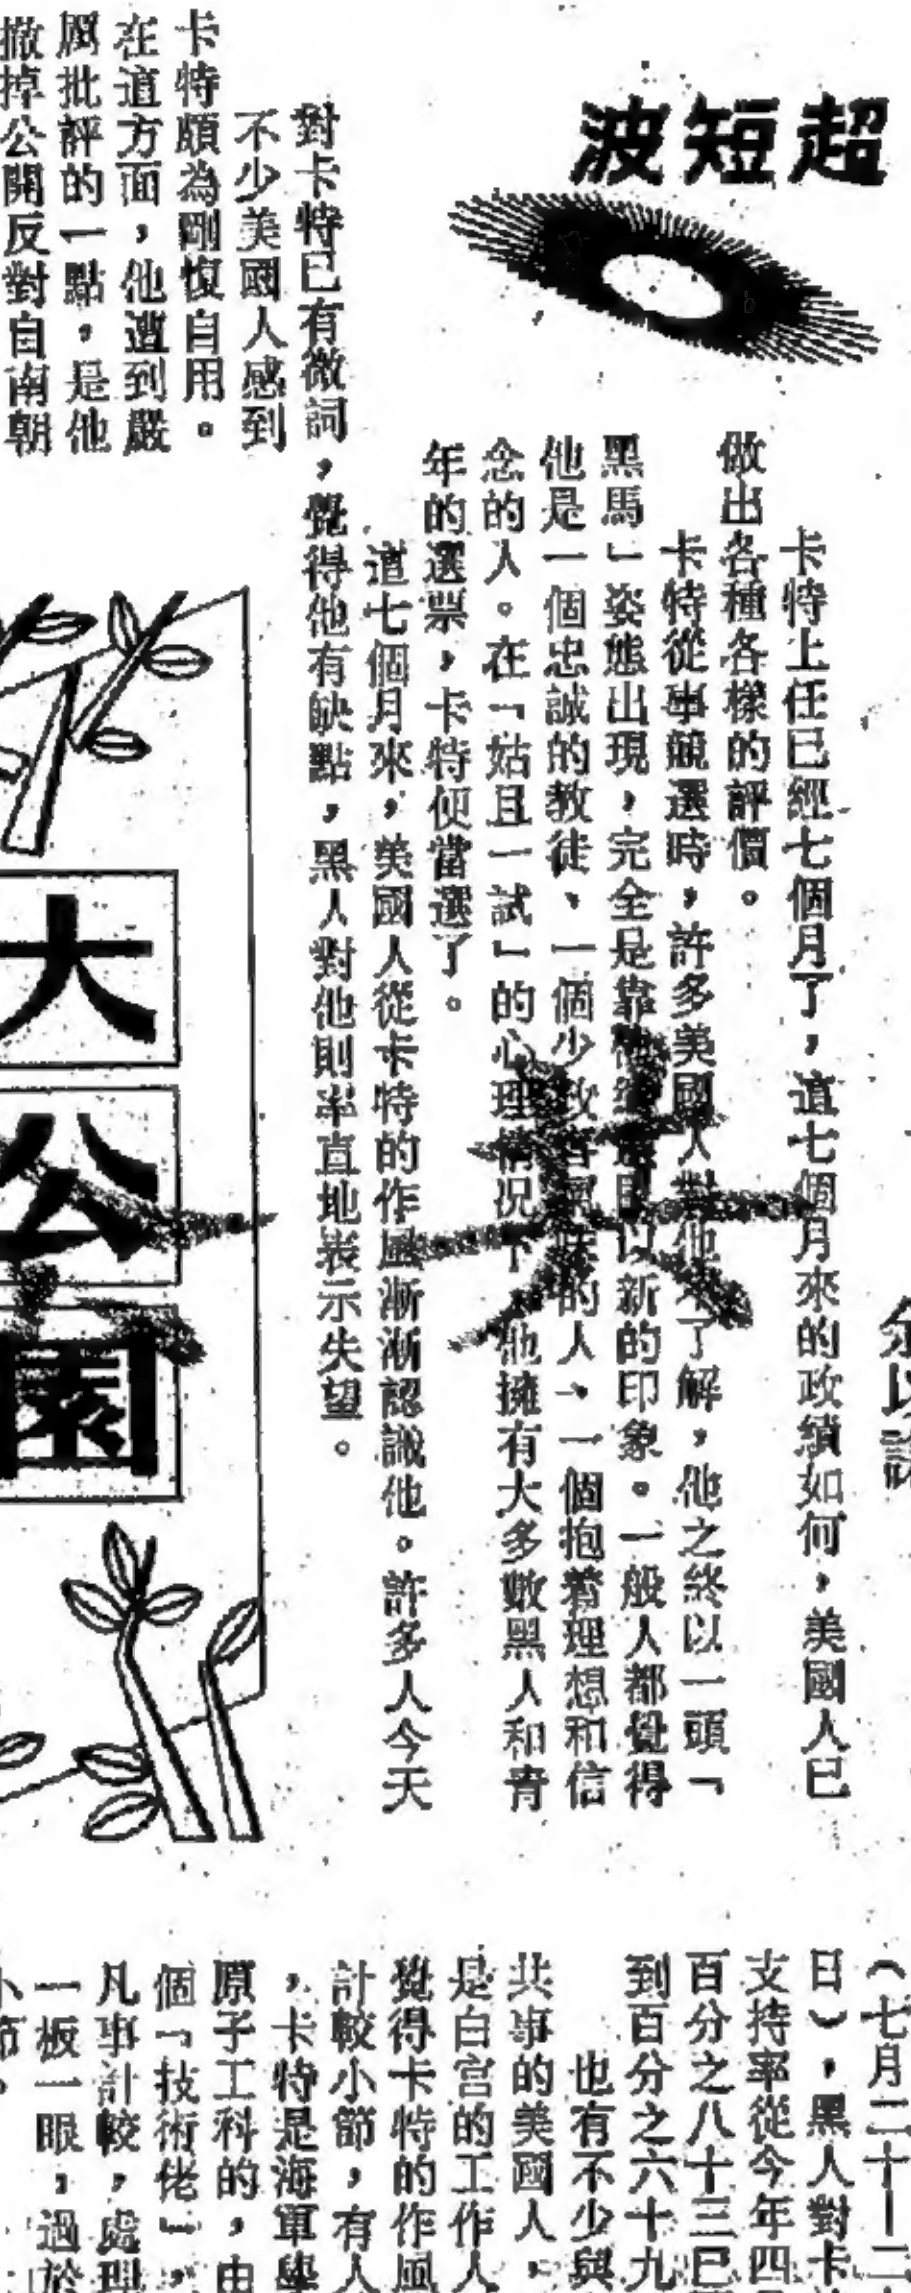 超短波
余以
卡特上任已經七個月了，這七個月來的政績如何，美國人已
做出各種各樣的評價。
卡特從事競選時，許多美國人對他不了解，他之終以一頭「
黑馬」姿態出現，完全是靠他給選民以新的印象。一般人都覺得
他是一個忠誠的教徒、一個少政客氣味的人、一個抱着理想和信
念的人。在「姑且一試」的心理情況下，他擁有大多數黑人和青
年的選票，卡特便當選了。
這七個月來，美國人從卡特的作風漸漸認識他。許多人今天
對卡特已有微詞，覺得他有缺點，黑人對他則率直地表示失望。
不少美國人感到
卡特頗為剛愎自用。
在這方面，他遭到嚴
厲批評的一點，是他
撤掉公開反對自南朝
大公園
（七月二十一二
日），黑人對卡
支持率從今年四
百分之八十三已
到百分之六十九
也有不少與
共事的美國人，
是白宮的工作人
覺得卡特的作風
計較小節，有人
，卡特是海軍學
原子工科的，由
個「技術佬」，
凡事計較，處理
一板一眼，過於
小節。